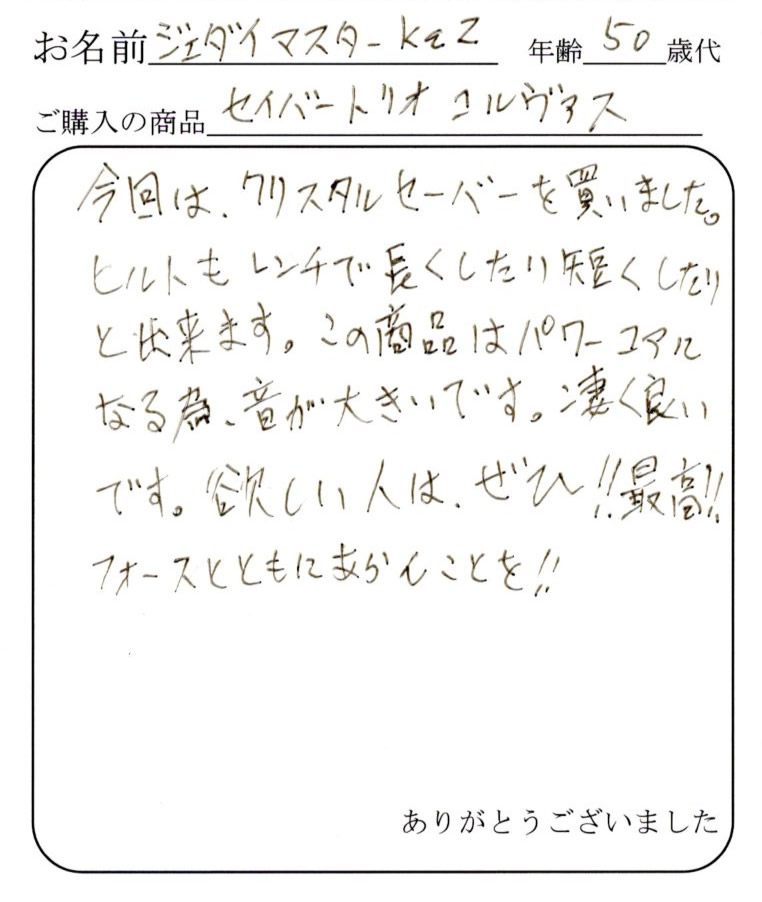 お名前 ジェダイマスターkaz 年齢 50 歳代
ご購入の商品 セイバートリオ コルヴァス
今回は、クリスタルセーバーを買いました。
ヒルトもレンチで長くしたり短くしたり
と出来ます。この商品はパワーコアに
なる為、音が大きいです。凄く良い
です。欲しい人は、ぜひ!!最高!!
フォースとともにあらんことを!!
ありがとうございました